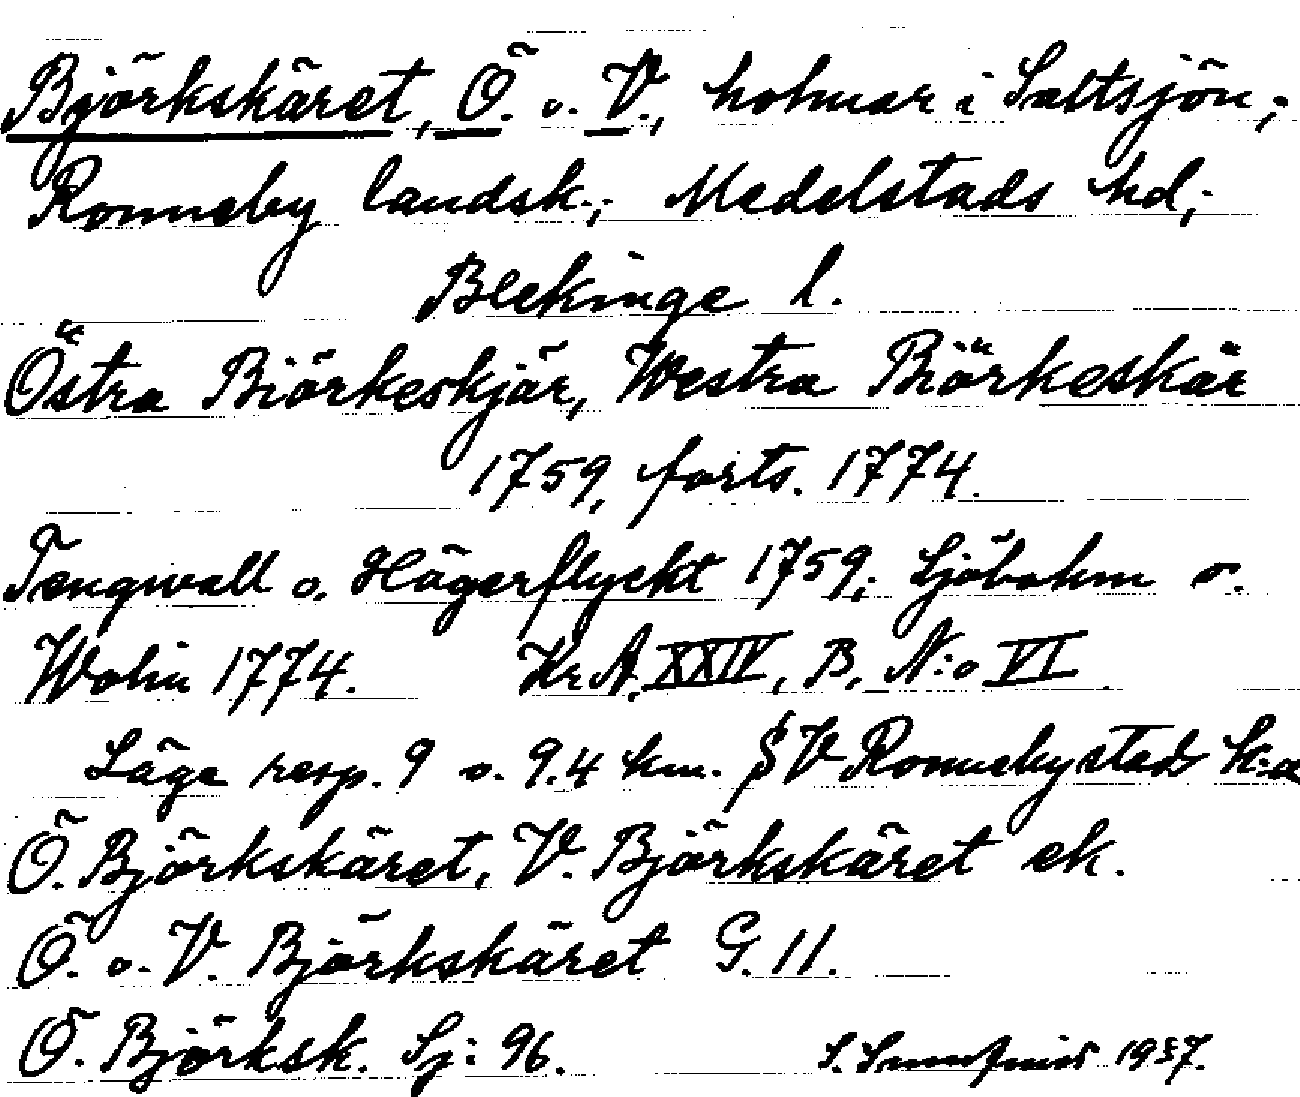 Björkskäret, Ö. o. V., holmar i Saltsjön;
Ronneby landsk.; Medelstads hd;
Blekinge l.
Östra Biörkeskjär, Westra Biörkeskär
1759, forts. 1774.
Tengwall o. Hägerflyckt 1759; Sjöbohm o.
Wolin 1774. Kr.A. XXIV, B, N:o VI
Läge resp. 9 o. 9.4 km. SV Ronneby stads k:a
Ö. Björkskäret, V. Björkskäret ek.
Ö. o. V. Björkskäret G. 11.
Ö. Björksk. Sj: 96.
S. 1937.